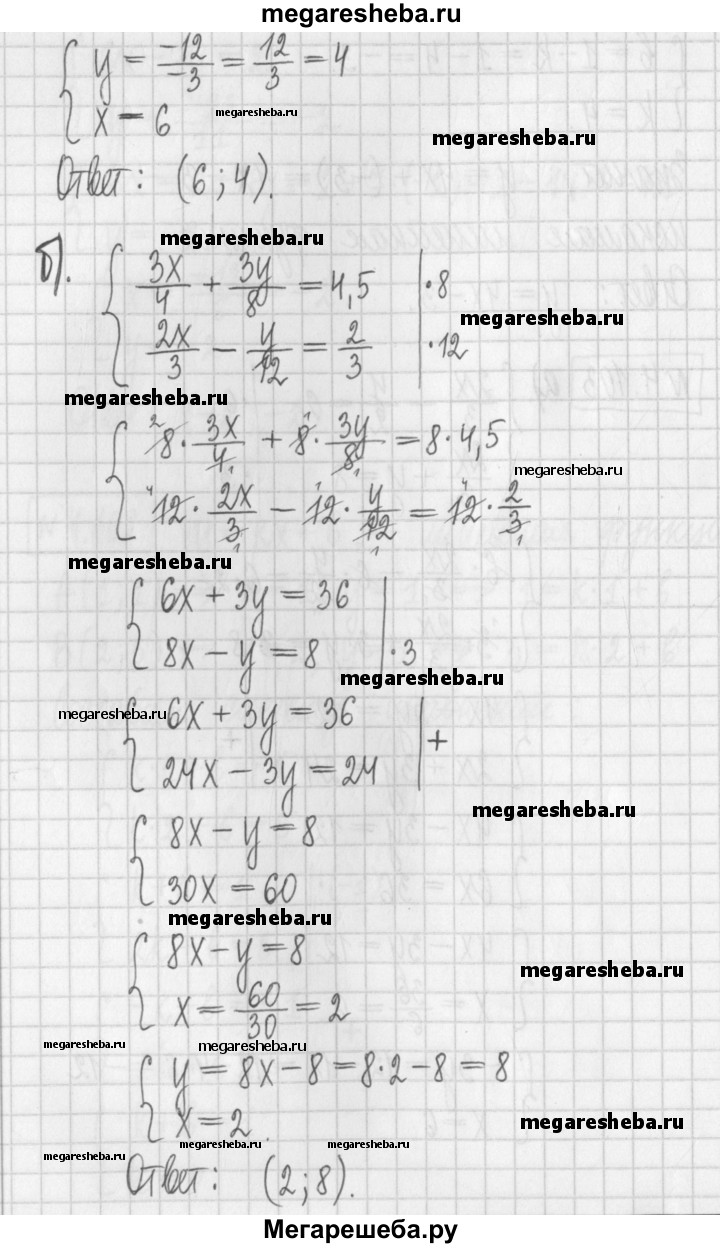 megaresheba.ru
{ y = -12/-3 = 12/3 = 4
{ x = 6 megaresheba.ru
megaresheba.ru
Ответ: (6;4).
megaresheba.ru
б). { 3x/4 + 3y/8 = 4,5 | ·8
megaresheba.ru
{ 2x/3 - y/12 = 2/3 | ·12
megaresheba.ru
{ ²8·3x/4₁ + ¹8·3y/8₁ = 8·4,5
megaresheba.ru
{ ⁴12·2x/3₁ - ¹12·y/12₁ = ⁴12·2/3₁
megaresheba.ru
{ 6x + 3y = 36
{ 8x - y = 8 | ·3
megaresheba.ru
megaresheba.ru { 6x + 3y = 36 | +
{ 24x - 3y = 24
megaresheba.ru
{ 8x - y = 8
{ 30x = 60
megaresheba.ru
{ 8x - y = 8
megaresheba.ru
{ x = 60/30 = 2
megaresheba.ru megaresheba.ru
{ y = 8x - 8 = 8·2 - 8 = 8
{ x = 2.
megaresheba.ru
megaresheba.ru megaresheba.ru
megaresheba.ru
Ответ: (2;8).
Мегарешеба.ру